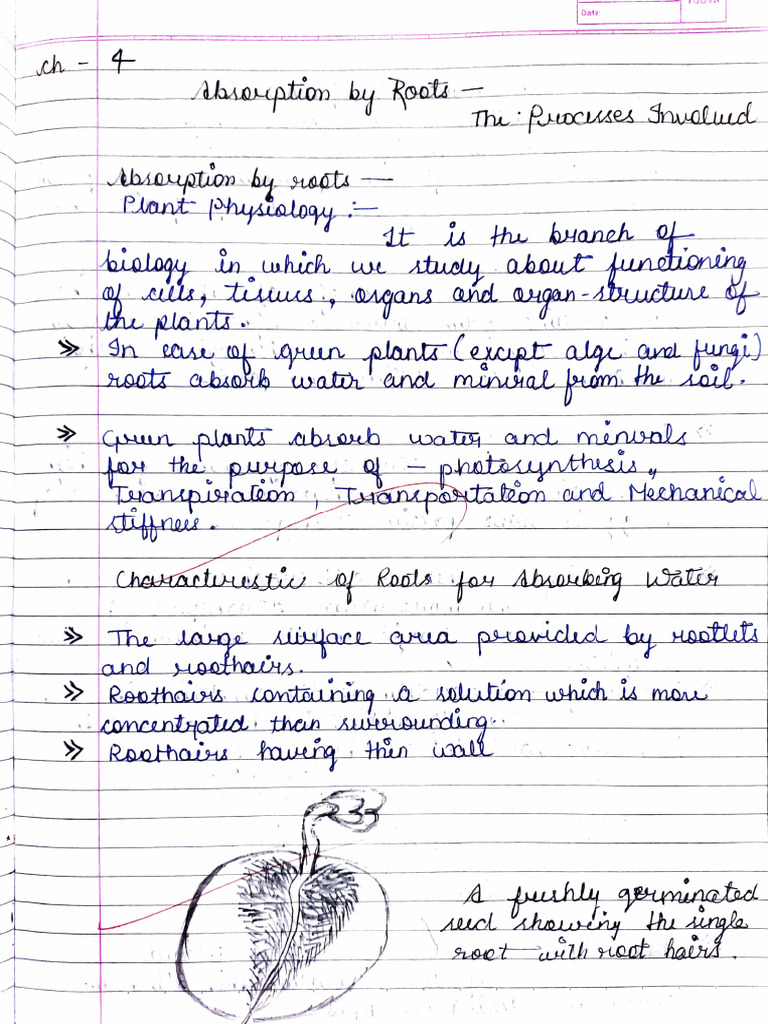 Date:
ch - 4
Absorption by Roots —
The : Processes Involved
Absorption by roots —
Plant Physiology :—
It is the branch of
biology in which we study about functioning
of cells, tissues, organs and organ-structure of
the plants.
» In case of green plants (except alge and fungi)
roots absorb water and miniral from the soil.
» Green plants absorb water and minirals
for the purpose of - photosynthesis,
Transpiration, Transportation and Mechanical
stiffness.
Characterestic of Roots for Absorbing Water
» The large surface area provided by rootlets
and roothairs.
» Roothairs containing a solution which is more
concentrated than surrounding.
» Roothairs having thin wall
A freshly germinated
seed showing the single
root with root hairs.